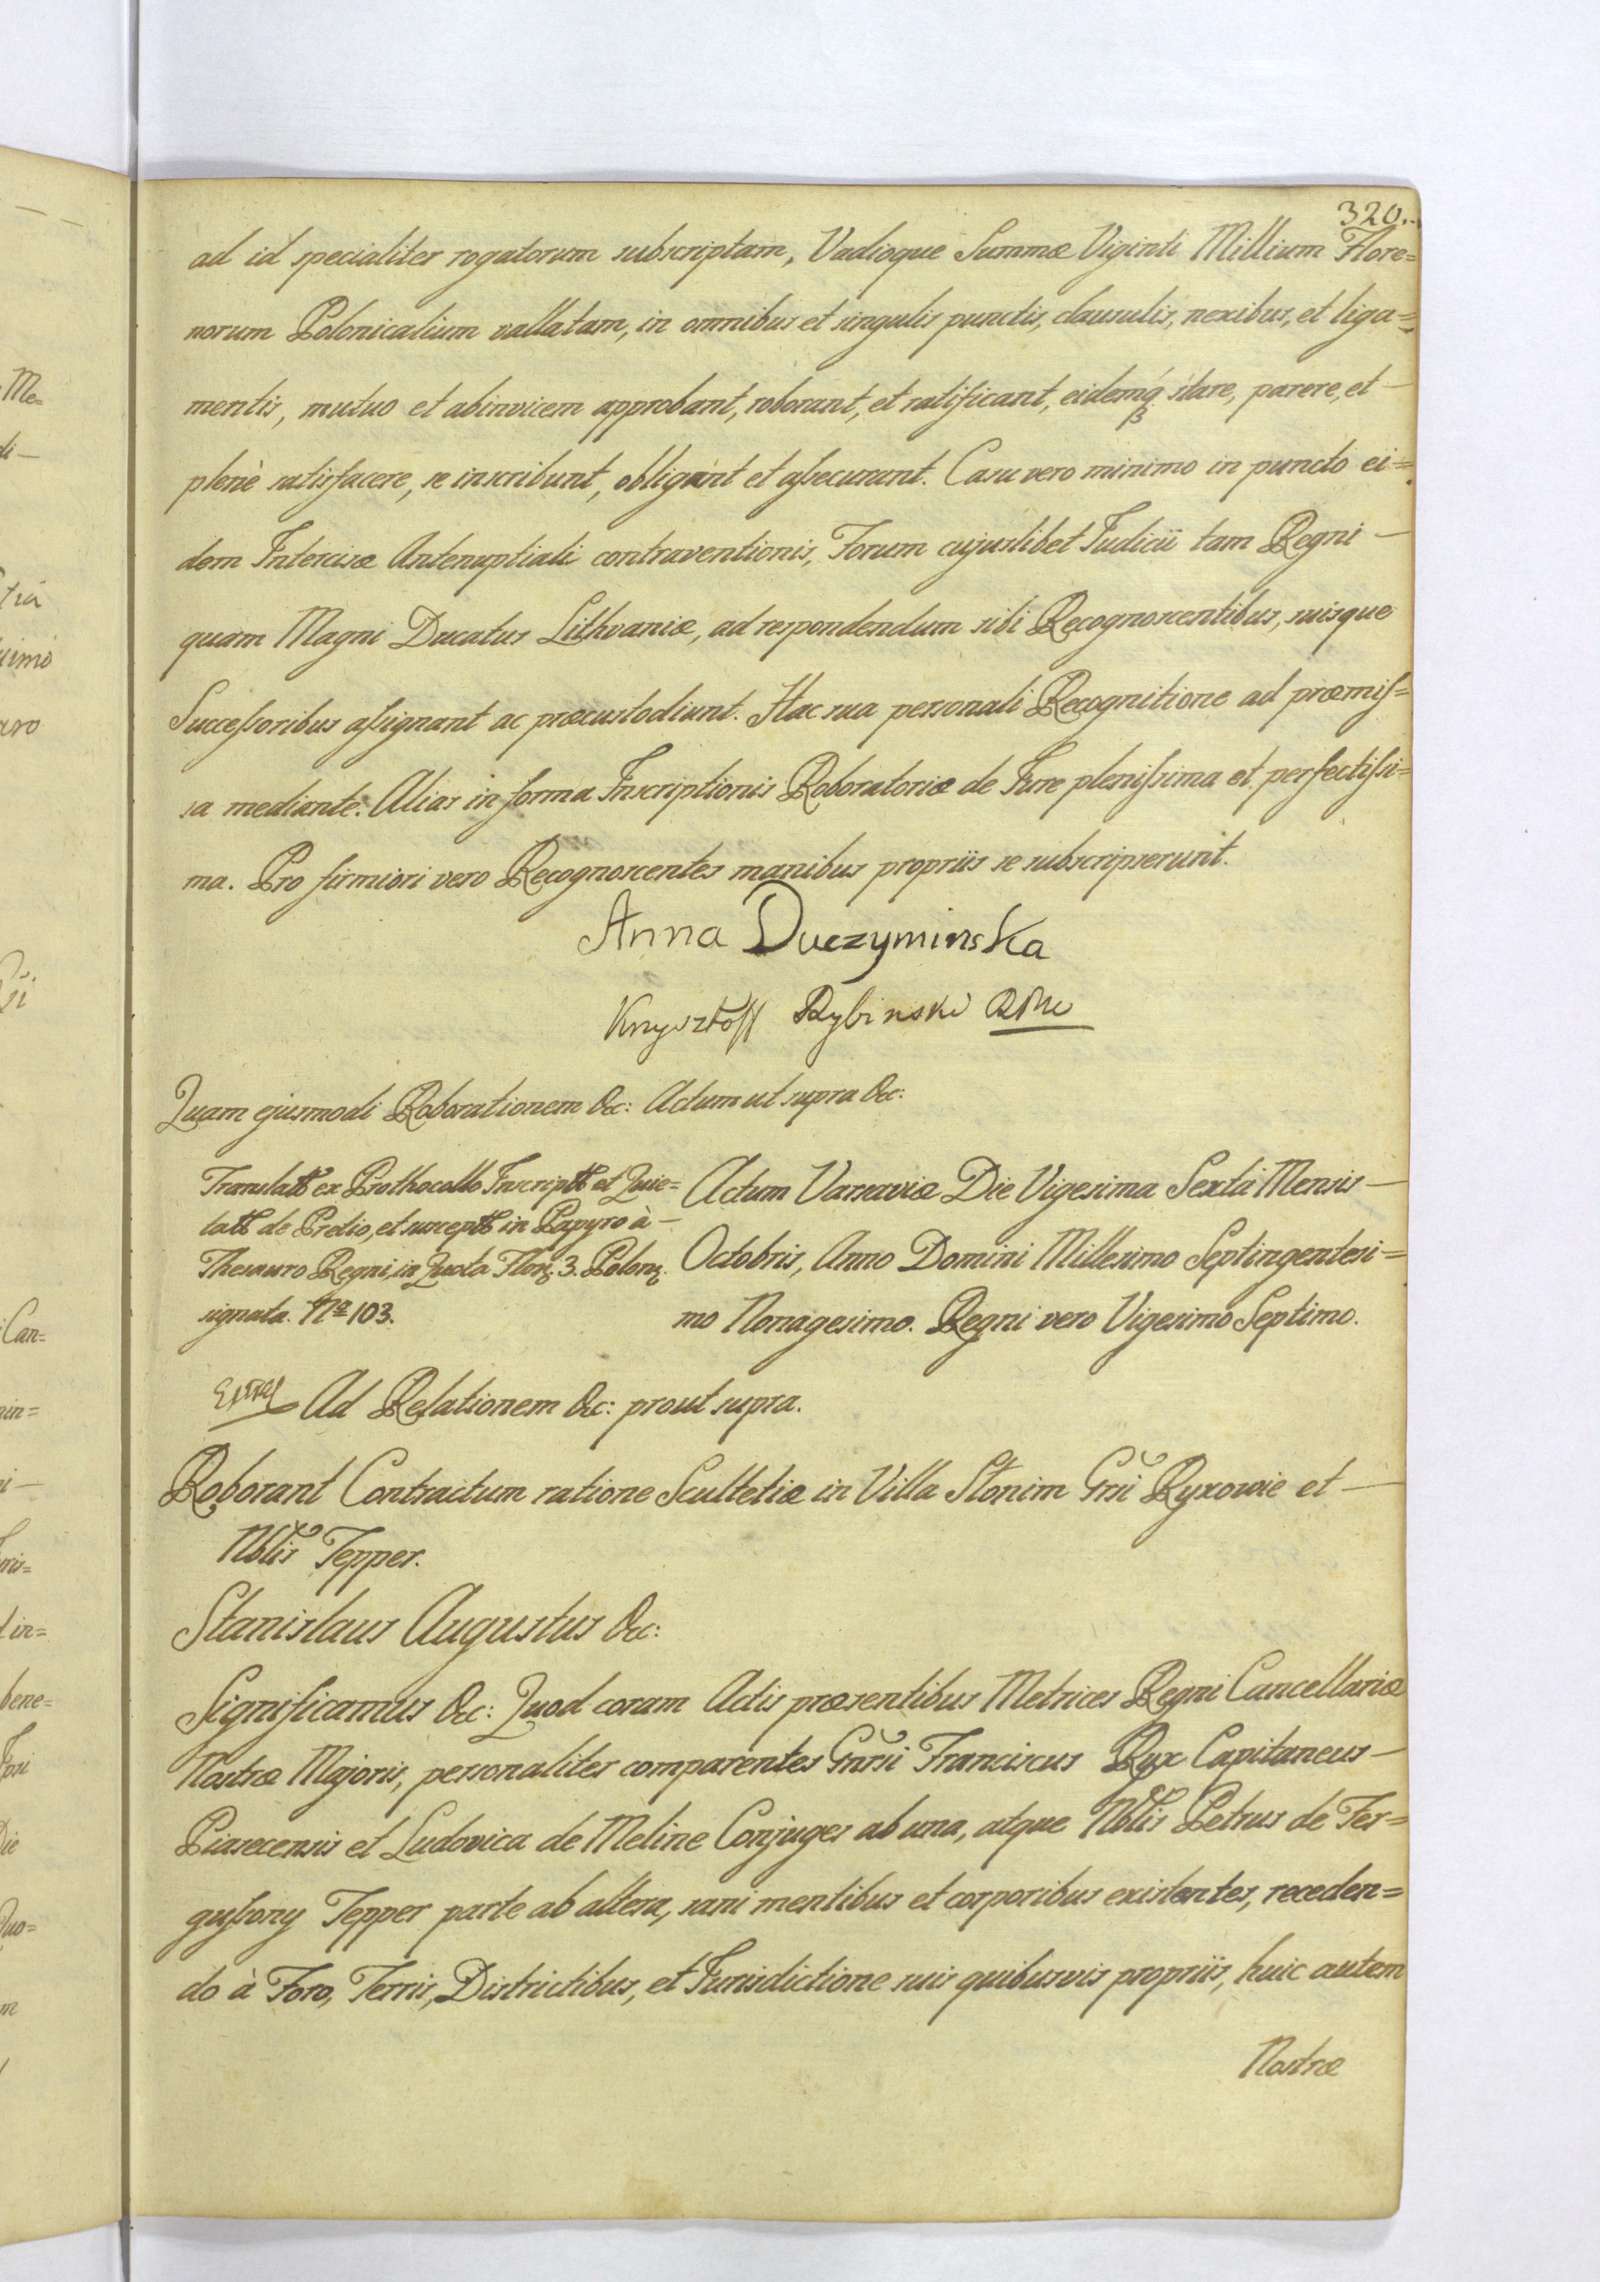 320.
ad id specialiter rogatorum subscriptam, Vadioque Summæ Viginti Millium Flore=
norum Polonicalium vallatam, in omnibus et singulis punctis, clausulis, nexibus, et liga=
mentis, mutuo et abinvicem approbant, roborant, et ratificant, eidemq stare, parere, et —
plenè satisfacere, se inscribunt, obligant et assecurant. Casu vero minimo in puncto ei=
dem Intercisæ Antenuptiali contraventionis, Forum cujuslibet Judicii tam Regni —
quam Magni Ducatus Lithvaniæ, ad respondendum sibi Recognoscentibus, suisque
Successoribus assignant ac præcustodiunt. Hac sua personali Recognitione ad præmis=
sa mediante. Alias in forma Inscriptionis Roboratoriæ de Jure plenissima et perfectissi=
ma. Pro firmiori vero Recognoscentes manibus propriis se subscripserunt.
Anna Duczyminska
Krzysztoff Rybinski
Quam ejusmodi Roborationem &c: Actum ut supra &c:
Translatt ex Prothocollo Inscriptt et Quie=
tatt de Predio, et susceptt in Papyro à —
Thesauro Regni, in Quota Flor. 3. Polon.
signata. Nº 103.
Actum Varsaviæ Die Vigesima Sexta Mensis —
Octobris, Anno Domini Millesimo Septingentesi=
mo Nonagesimo. Regni vero Vigesimo Septimo.
Ad Relationem &c: prout supra.
Roborant Contractum ratione Scultetiæ in Villa Stonim Grsi Ryxowie et —
Nblis Tepper.
Stanislaus Augustus &c:
Significamus &c: Quod coram Actis præsentibus Metrices Regni Cancellariæ
Nostræ Majoris, personaliter comparentes Gnrsi Franciscus Ryx Capitaneus —
Piasecensis et Ludovica de Meline Conjuges ab una, atque Nblis Petrus de Fer=
gussony Tepper parte ab altera, sani mentibus et corporibus existentes, receden=
do à Foro, Terris, Districtibus, et Jurisdictione suis quibusvis propriis, huic autem
Nostræ